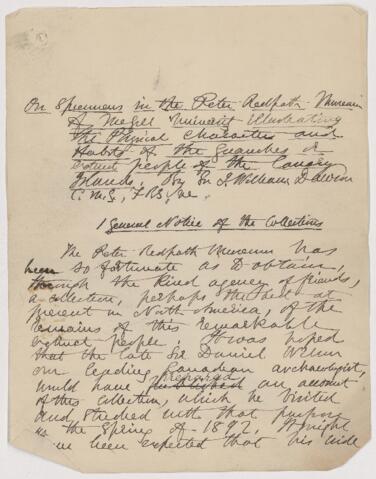 On Specimens in the Peter Redpath Museum
of McGill University Illustrating
the Physical Characters and
Habits of the Guanches or
extinct people of the Canary
Islands, By Sir J. William Dawson
C.M.G., F.R.S., &c.
1 General Notice of the Collections
The Peter Redpath Museum has
been so fortunate as to obtain,
through the kind agency of friends,
a collection, perhaps the best at
present in North America, of the
remains of this remarkable
extinct people. It was hoped
that the late Sir Daniel Wilson
our leading Canadian archaeologist,
would have prepared an account
of this collection, which he visited
and studied with that purpose
in the Spring of 1892. It might
been expected that his wide